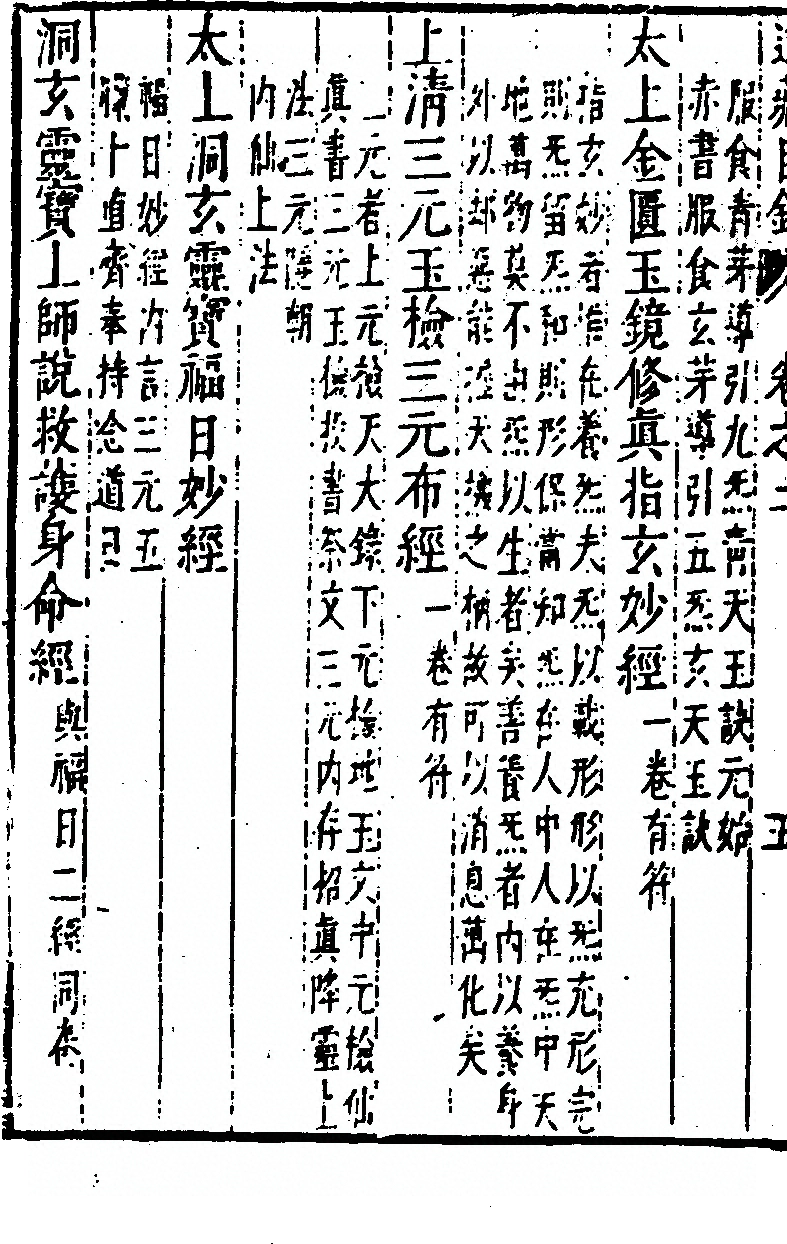 道藏目錄 卷之二
服食青芽導引九炁靑天玉訣元始
赤書服食玄芽導引五炁玄天玉訣
太上金匱玉鏡修眞指玄妙經 一卷有符
指玄妙者指在養炁夫炁以載形形以炁充形完
則炁留炁和則形保當知炁在人中人在炁中天
地萬物莫不由炁以生者矣善養炁者內以養身
外以却惡能天機之柄故可以消息萬化矣
上淸三元玉檢三元布經 一卷有符
一元者上元檢天大錄下元檢地玉文中元檢仙
眞書三元玉檢投書祭文三元內存招眞降靈上
法三元隱朝
內仙上法
太上洞玄靈寶福日妙經
福日妙經內言三元五
臘十直齋奉持念道
洞玄靈寶上師說救護身命經 與福日二經同卷